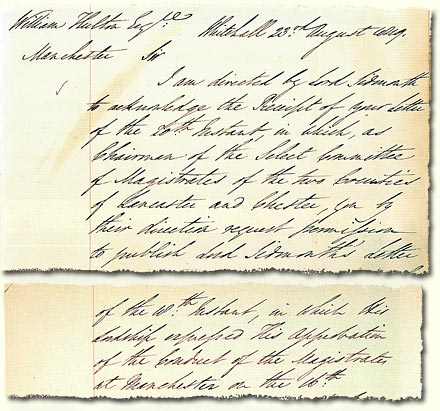 William Hulton Esqre. Whitehall 23rd August 1819.
Manchester Sir
I am directed by Lord Sidmouth
to acknowledge the Receipt of your Letter
of the 20th Instant, in which, as
Chairman of the Select Committee
of Magistrates of the two Counties
of Lancaster and Chester you by
their direction request permission
to publish Lord Sidmouth's Letter
of the 18th Instant, in which His
Lordship expressed His Approbation
of the Conduct of the Magistrates
at Manchester on the 16th.